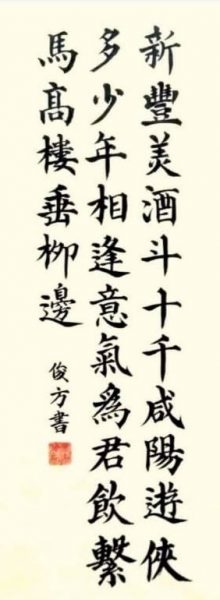 新豐美酒斗十千咸陽遊俠
多少年相逢意氣為君飲繫
馬高樓垂柳邊
俊方書